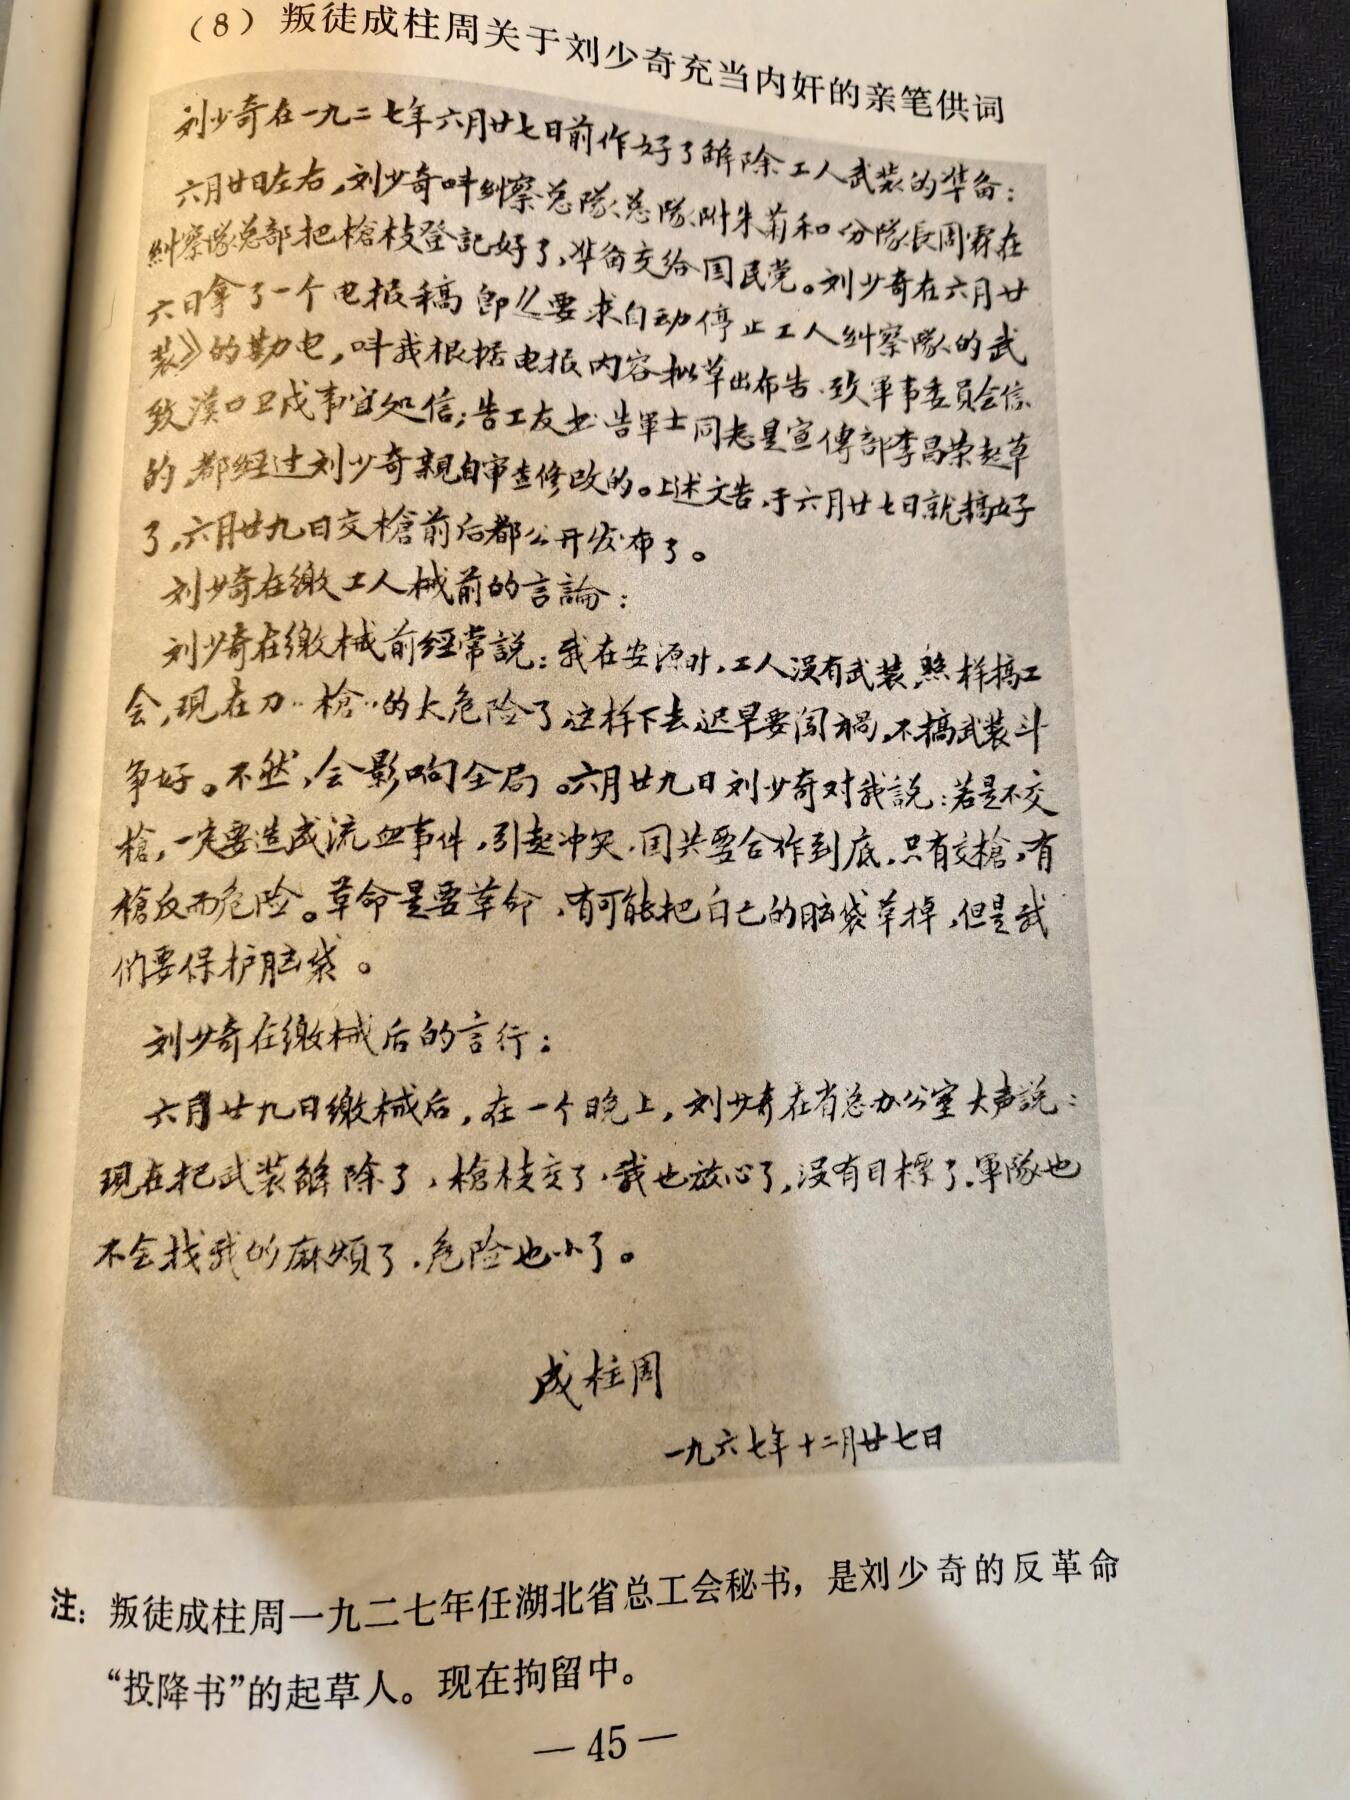 （8）叛徒成柱周关于刘少奇充当内奸的亲笔供词
刘少奇在一九二七年六月廿七日前作好了解除工人武装的准备：
六月廿日左右，刘少奇叫糾察总隊总隊附朱菊和分隊長周霖在
糾察隊总部把槍枝登記好了，准备交给国民党。刘少奇在六月廿
六日拿了一个电报稿即《要求自动停止工人糾察隊的武
装》的勘电，叫我根据电报内容拟草出布告、致軍事委員会信、
致漢口卫戍事宜处信；告工友书、告軍士同志是宣傳部李昌荣起草
的，都經过刘少奇親自审查修改的。上述文告，于六月廿七日就搞好
了，六月廿九日交槍前后都公开发布了。
刘少奇在缴工人械前的言論：
刘少奇在缴械前經常說：我在安源时，工人没有武装，照样搞工
会，现在刀··槍··的太危险了，这样下去迟早要闯禍，不搞武装斗
争好。不然，会影响全局。六月廿九日刘少奇对我說：若是不交
槍，一定要造成流血事件，引起冲突，国共要合作到底，只有交槍，有
槍反而危险。革命是要革命，有可能把自己的脑袋革掉，但是我
们要保护脑袋。
刘少奇在缴械后的言行：
六月廿九日缴械后，在一个晚上，刘少奇在省总办公室大声說：
現在把武装解除了，槍枝交了，我也放心了，没有目標了，軍隊也
不会找我的麻煩了，危险也小了。
成柱周
一九六七年十二月廿七日
注：叛徒成柱周一九二七年任湖北省总工会秘书，是刘少奇的反革命
“投降书”的起草人。现在拘留中。
—45—